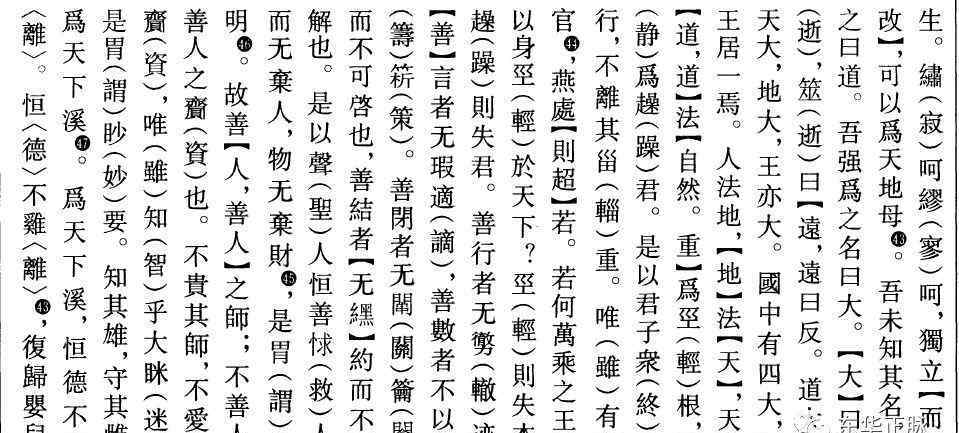 生。繡(寂)呵繆(寥)呵，獨立【而
改】，可以爲天地母㊸。吾未知其名
之曰道。吾强爲之名曰大。【大】曰
(逝)，筮(逝)曰【遠，遠曰反。道
天大，地大，王亦大。國中有四大，
王居一焉。人法地，【地】法【天】，天
【道，道】法【自然。重】爲巠(輕)根，
(静)爲趮(躁)君。是以君子衆(終)
行，不離其甾(輜)重。唯(雖)有
官㊹，燕處【則超】若。若何萬乘之王
以身巠(輕)於天下？巠(輕)則失本
趮(躁)則失君。善行者无勶(轍)迹
【善】言者无瑕適(謫)，善數者不以
(籌)筞(策)。善閉者无𨵿(關)籥(
而不可啓也，善結者【无纆】約而不
解也。是以聲(聖)人恒善㤹(救)人
而无棄人，物无棄財㊺，是胃(謂)
明㊻。故善【人，善人】之師；不善人
善人之齎(資)也。不貴其師，不愛
齎(資)，唯(雖)知(智)乎大眯(迷
是胃(謂)眇(妙)要。知其雄，守其雌
爲天下溪㊼。爲天下溪，恒德不
〈離〉。恒〈德〉不雞〈離〉㊽，復歸嬰兒
东华正脉